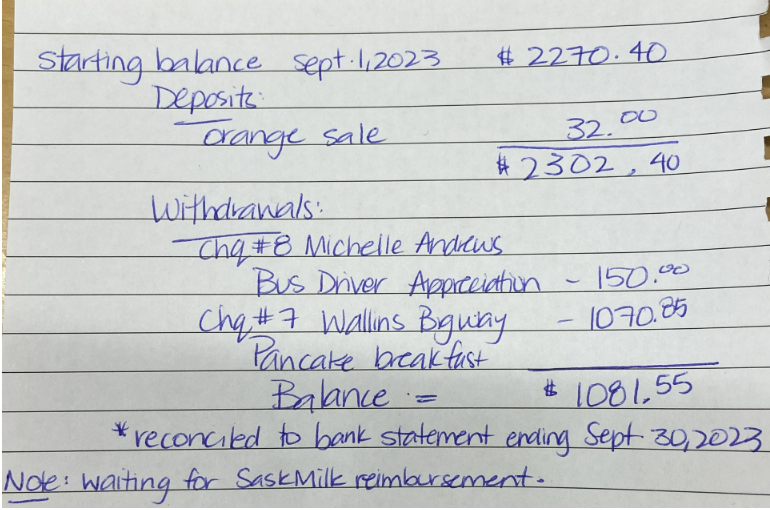 Starting balance Sept. 1, 2023 $ 2270.40
Deposits:
orange sale 32.00
$ 2302.40
Withdrawals:
Chq #8 Michelle Andrews
Bus Driver Appreciation - 150.00
Chq #7 Wallins Bigway - 1070.85
Pancake breakfast
Balance = $ 1081.55
*reconciled to bank statement ending Sept 30, 2023
Note: Waiting for SaskMilk reimbursement.